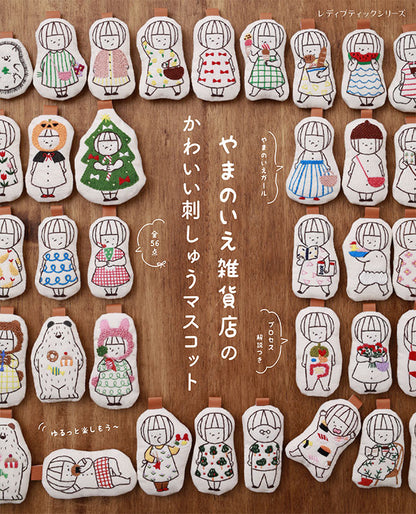 レディブティックシリーズ
やまのいえ雑貨店の
かわいい刺しゅうマスコット
やまのいえガール
全56点
プロセス
解説つき
ゆるっと楽しもう～